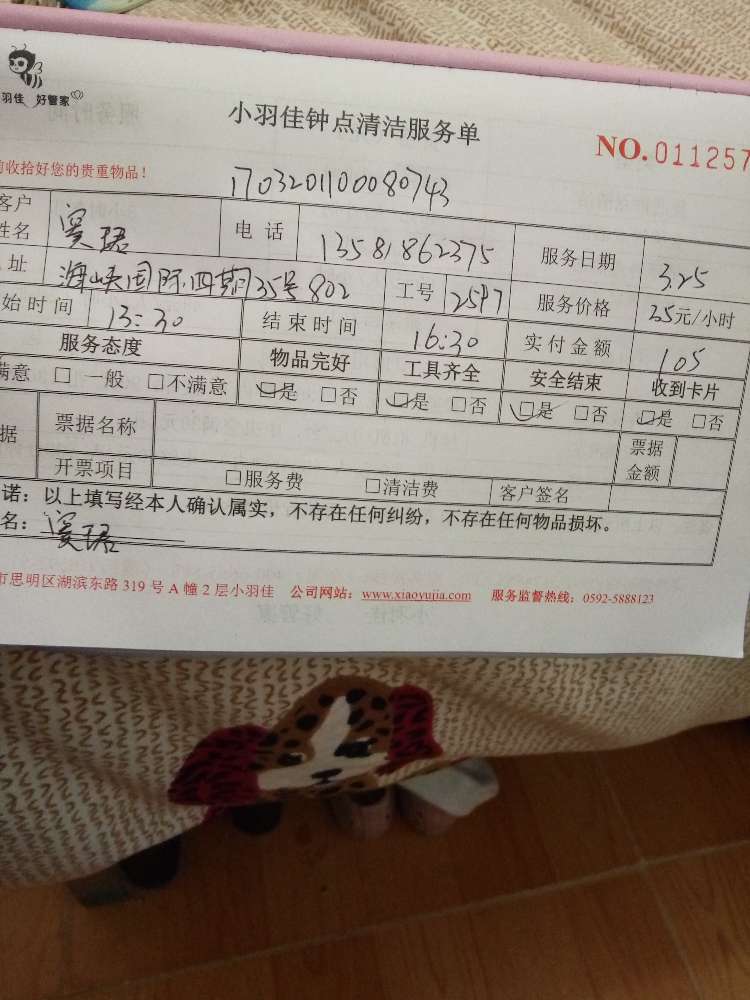 羽佳 好管家
小羽佳钟点清洁服务单
NO.011257
前收拾好您的贵重物品！
170320110008 0743
客户姓名 电话 13581862375 服务日期 3.25
址 海峡国际四期35号802 工号 2597 服务价格 35元/小时
始时间 13:30 结束时间 16:30 实付金额 105
服务态度 物品完好 工具齐全 安全结束 收到卡片
满意 □一般 □不满意 □是 □否 □是 □否 □是 □否 □是 □否
据 票据名称 票据金额
开票项目 □服务费 □清洁费 客户签名
诺：以上填写经本人确认属实，不存在任何纠纷，不存在任何物品损坏。
名：
市思明区湖滨东路319号A幢2层小羽佳 公司网站：www.xiaoyujia.com 服务监督热线：0592-5888123